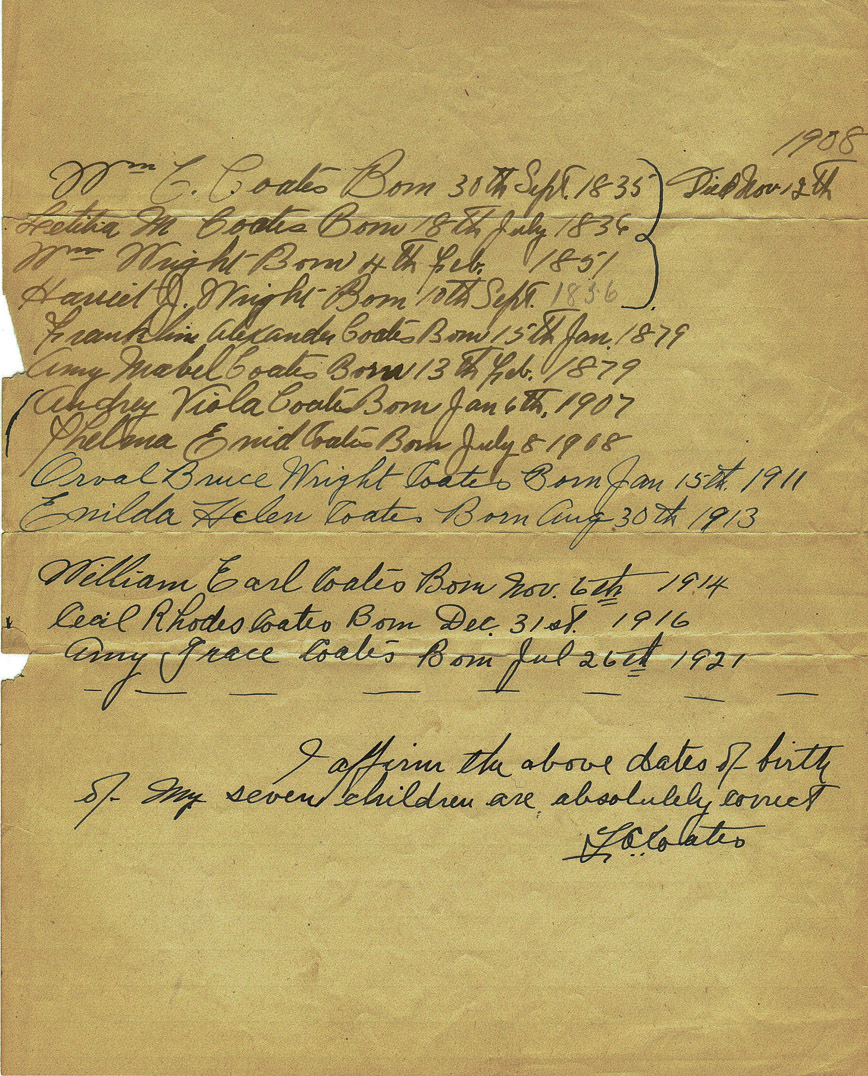 1908
Wm C. Coates Born 30th Sept. 1835 Died Nov 12th
Letitia M Coates Born 18th July 1836
Wm Wright Born 4th Feb. 1851
Harriet J. Wright Born 10th Sept. 1856
Franklin Alexander Coates Born 15th Jan. 1879
Amy Mabel Coates Born 13th Feb. 1879
Audrey Viola Coates Born Jan 6th, 1907
Thelma Enid Coates Born July 8 1908
Orval Bruce Wright Coates Born Jan 15th 1911
Enilda Helen Coates Born Aug 30th 1913
William Earl Coates Born Nov. 6th 1914
Cecil Rhodes Coates Born Dec. 31st. 1916
Amy Grace Coates Born Jul 26th 1921
I affirm the above dates of birth
of my seven children are absolutely correct
F.A. Coates